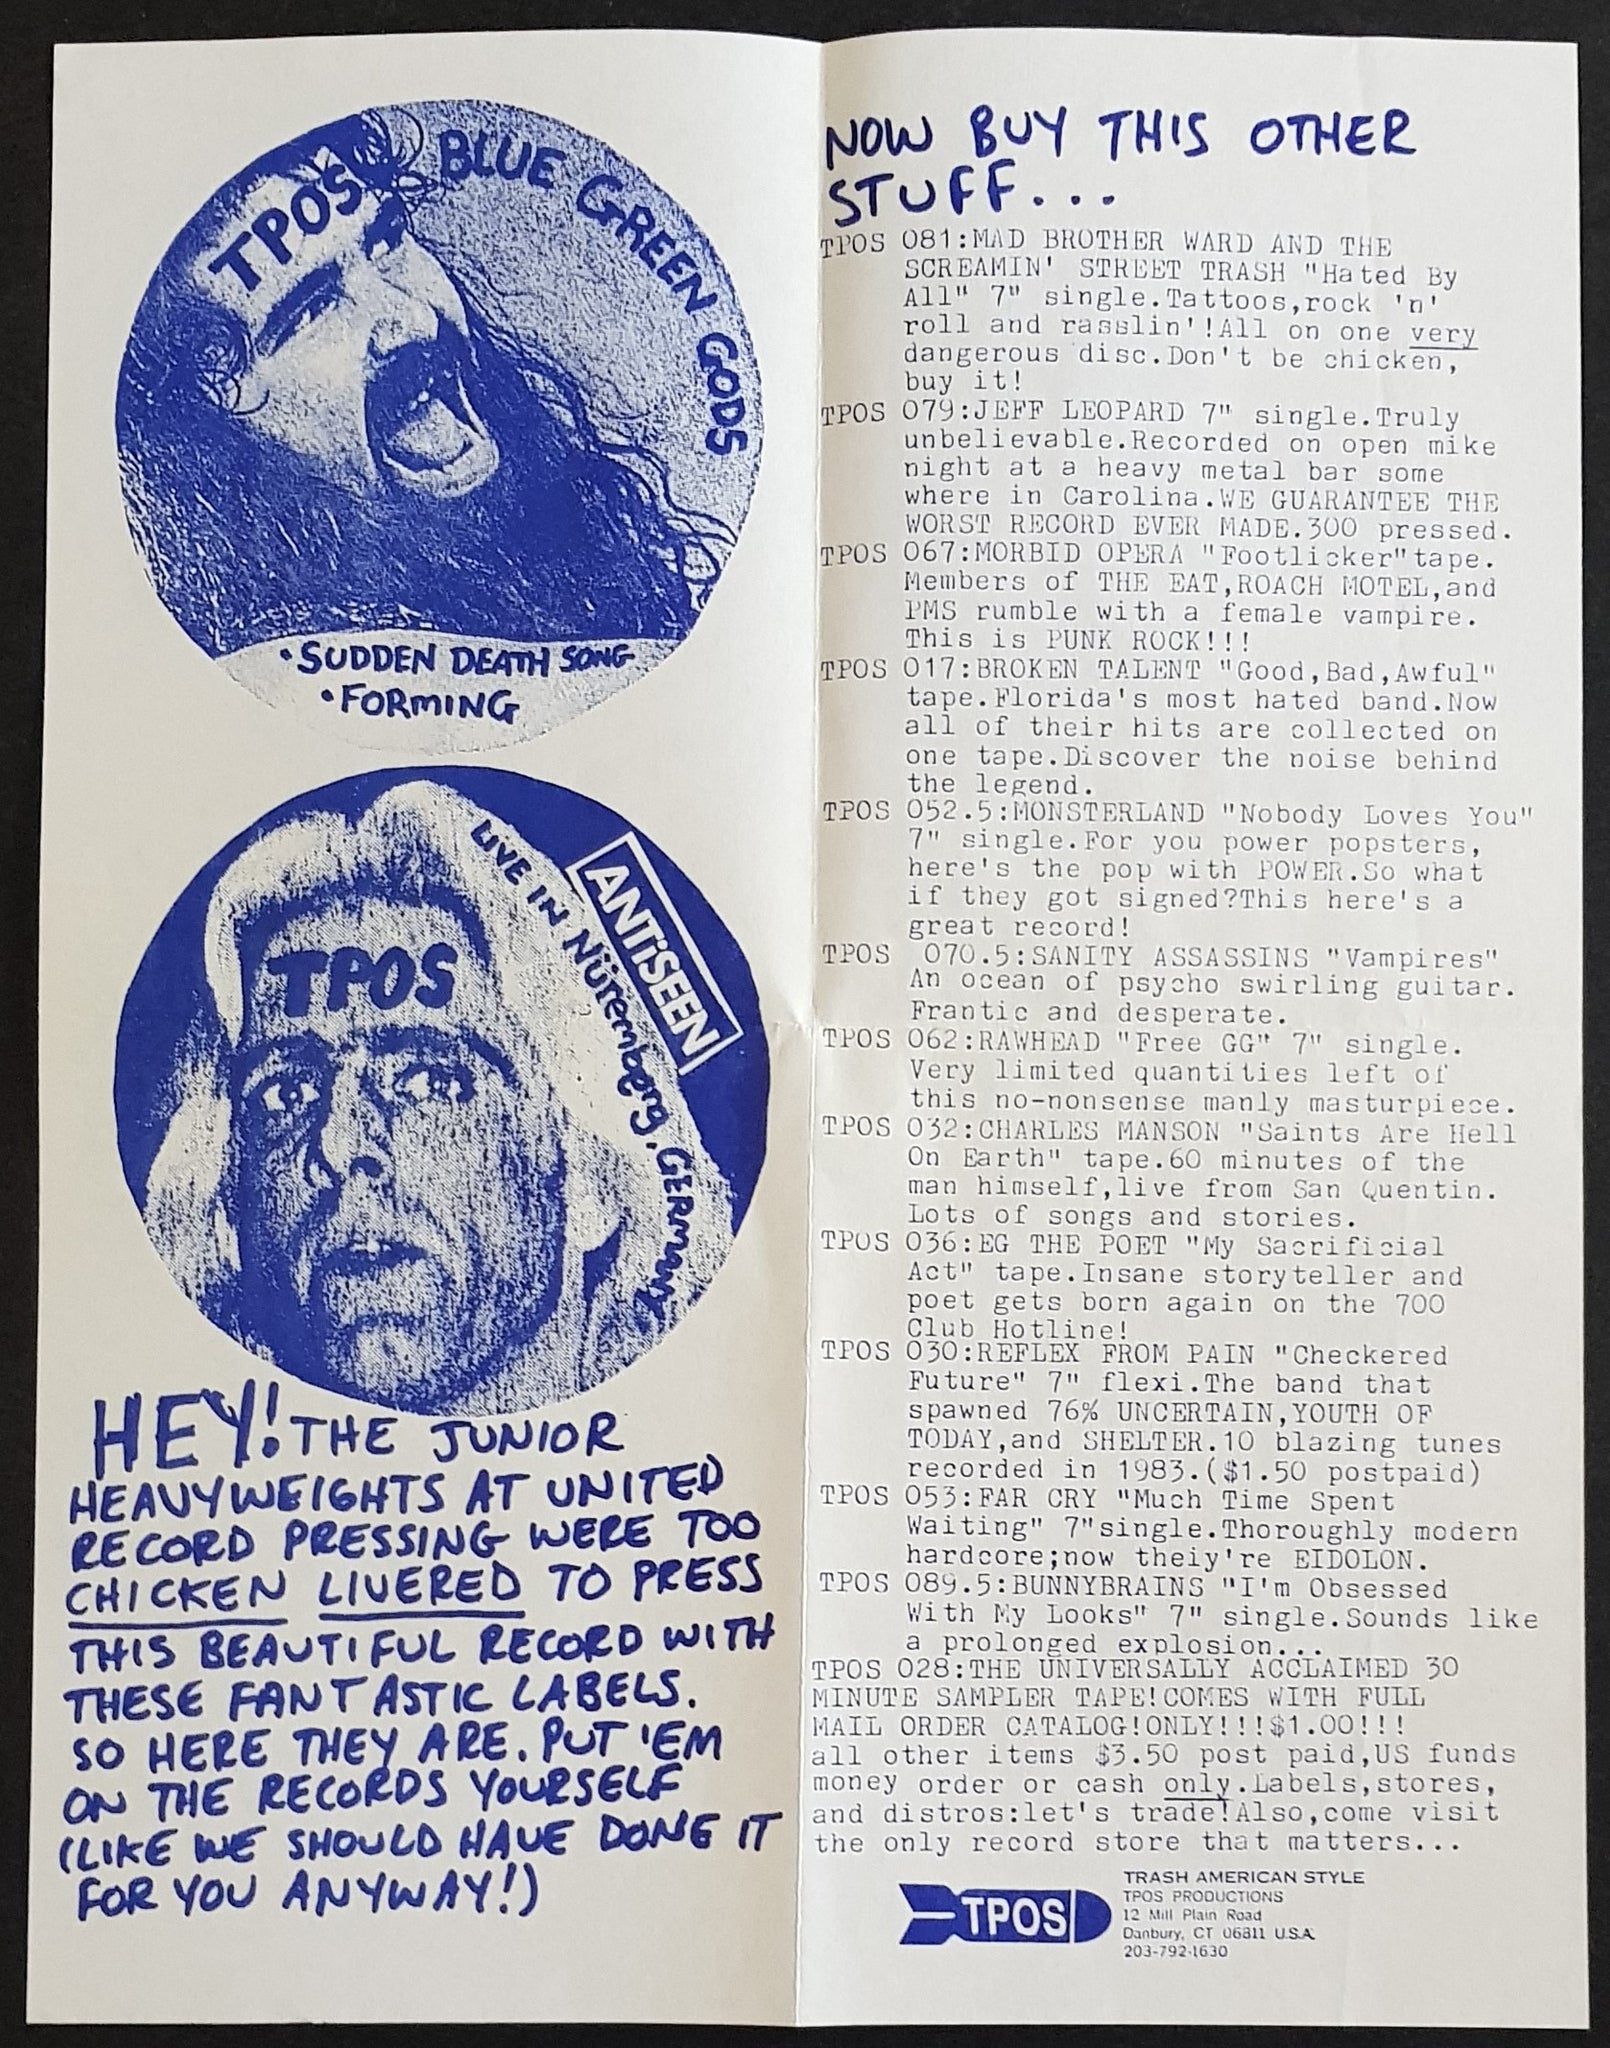 TPOS BLUE GREEN GODS
• SUDDEN DEATH SONG
• FORMING
TPOS
LIVE IN NÜREMBERG, GERMANY
ANTiSEEN
HEY! THE JUNIOR
HEAVYWEIGHTS AT UNITED
RECORD PRESSING WERE TOO
CHICKEN LIVERED TO PRESS
THIS BEAUTIFUL RECORD WITH
THESE FANTASTIC LABELS.
SO HERE THEY ARE. PUT 'EM
ON THE RECORDS YOURSELF
(LIKE WE SHOULD HAVE DONE IT
FOR YOU ANYWAY!)
NOW BUY THIS OTHER
STUFF...
TPOS 081:MAD BROTHER WARD AND THE
SCREAMIN' STREET TRASH "Hated By
All" 7" single.Tattoos,rock 'n'
roll and rasslin'!All on one very
dangerous disc.Don't be chicken,
buy it!
TPOS 079:JEFF LEOPARD 7" single.Truly
unbelievable.Recorded on open mike
night at a heavy metal bar some
where in Carolina.WE GUARANTEE THE
WORST RECORD EVER MADE.300 pressed.
TPOS 067:MORBID OPERA "Footlicker"tape.
Members of THE EAT,ROACH MOTEL,and
PMS rumble with a female vampire.
This is PUNK ROCK!!!
TPOS 017:BROKEN TALENT "Good,Bad,Awful"
tape.Florida's most hated band.Now
all of their hits are collected on
one tape.Discover the noise behind
the legend.
TPOS 052.5:MONSTERLAND "Nobody Loves You"
7" single.For you power popsters,
here's the pop with POWER.So what
if they got signed?This here's a
great record!
TPOS 070.5:SANITY ASSASSINS "Vampires"
An ocean of psycho swirling guitar.
Frantic and desperate.
TPOS 062:RAWHEAD "Free GG" 7" single.
Very limited quantities left of
this no-nonsense manly masturpiece.
TPOS 032:CHARLES MANSON "Saints Are Hell
On Earth" tape.60 minutes of the
man himself,live from San Quentin.
Lots of songs and stories.
TPOS 036:EG THE POET "My Sacrificial
Act" tape.Insane storyteller and
poet gets born again on the 700
Club Hotline!
TPOS 030:REFLEX FROM PAIN "Checkered
Future" 7" flexi.The band that
spawned 76% UNCERTAIN,YOUTH OF
TODAY,and SHELTER.10 blazing tunes
recorded in 1983.($1.50 postpaid)
TPOS 053:FAR CRY "Much Time Spent
Waiting" 7"single.Thoroughly modern
hardcore;now theiy're EIDOLON.
TPOS 089.5:BUNNYBRAINS "I'm Obsessed
With My Looks" 7" single.Sounds like
a prolonged explosion...
TPOS 028:THE UNIVERSALLY ACCLAIMED 30
MINUTE SAMPLER TAPE!COMES WITH FULL
MAIL ORDER CATALOG!ONLY!!!$1.00!!!
all other items $3.50 post paid,US funds
money order or cash only.Labels,stores,
and distros:let's trade!Also,come visit
the only record store that matters...
TPOS
TRASH AMERICAN STYLE
TPOS PRODUCTIONS
12 Mill Plain Road
Danbury, CT 06811 U.S.A.
203-792-1630